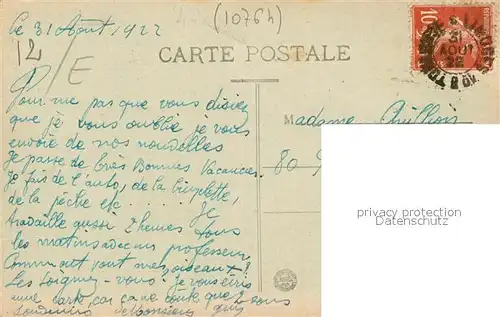 (10764)
le 31 Août 1922
12
E
CARTE POSTALE
10
31
AOUT
22
Pour ne pas que vous disiez
que je vous oublie je vous
envoie de nos nouvelles
Je passe de très Bonnes Vacances.
Je fais de l'auto, de la bicyclette,
de la pêche etc.... Je
travaille aussi 2 heures tous
les matins avec un professeur
Comment vont mes oiseaux?
Les soignez-vous. Je vous écris
une carte, car ça ne coûte que 2 sous
Madame
80
privacy protection
Datenschutz